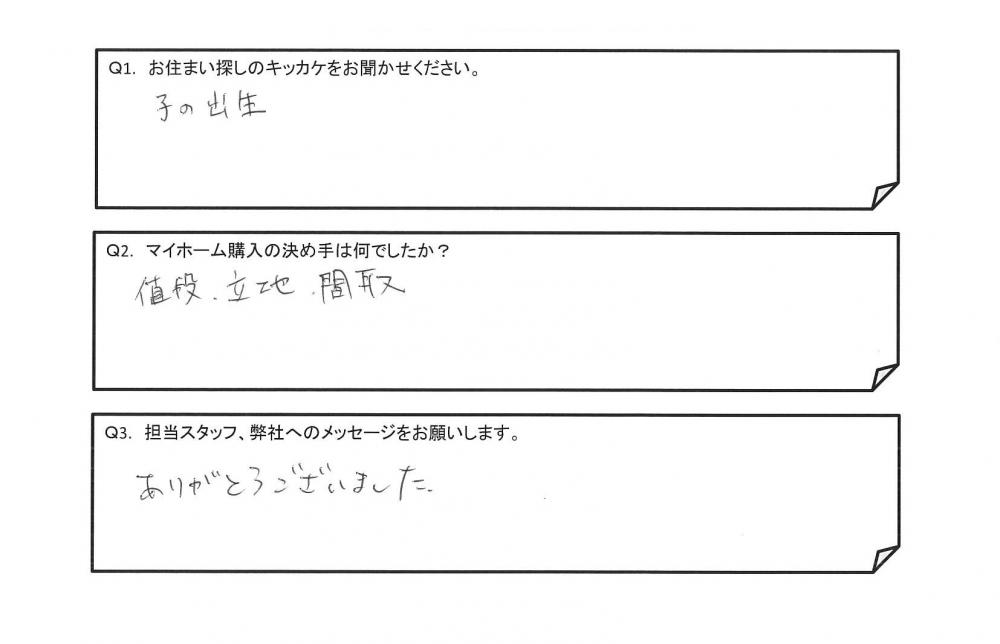 Q1. お住まい探しのキッカケをお聞かせください。
子の出生
Q2. マイホーム購入の決め手は何でしたか？
値段、立地、間取
Q3. 担当スタッフ、弊社へのメッセージをお願いします。
ありがとうございました。